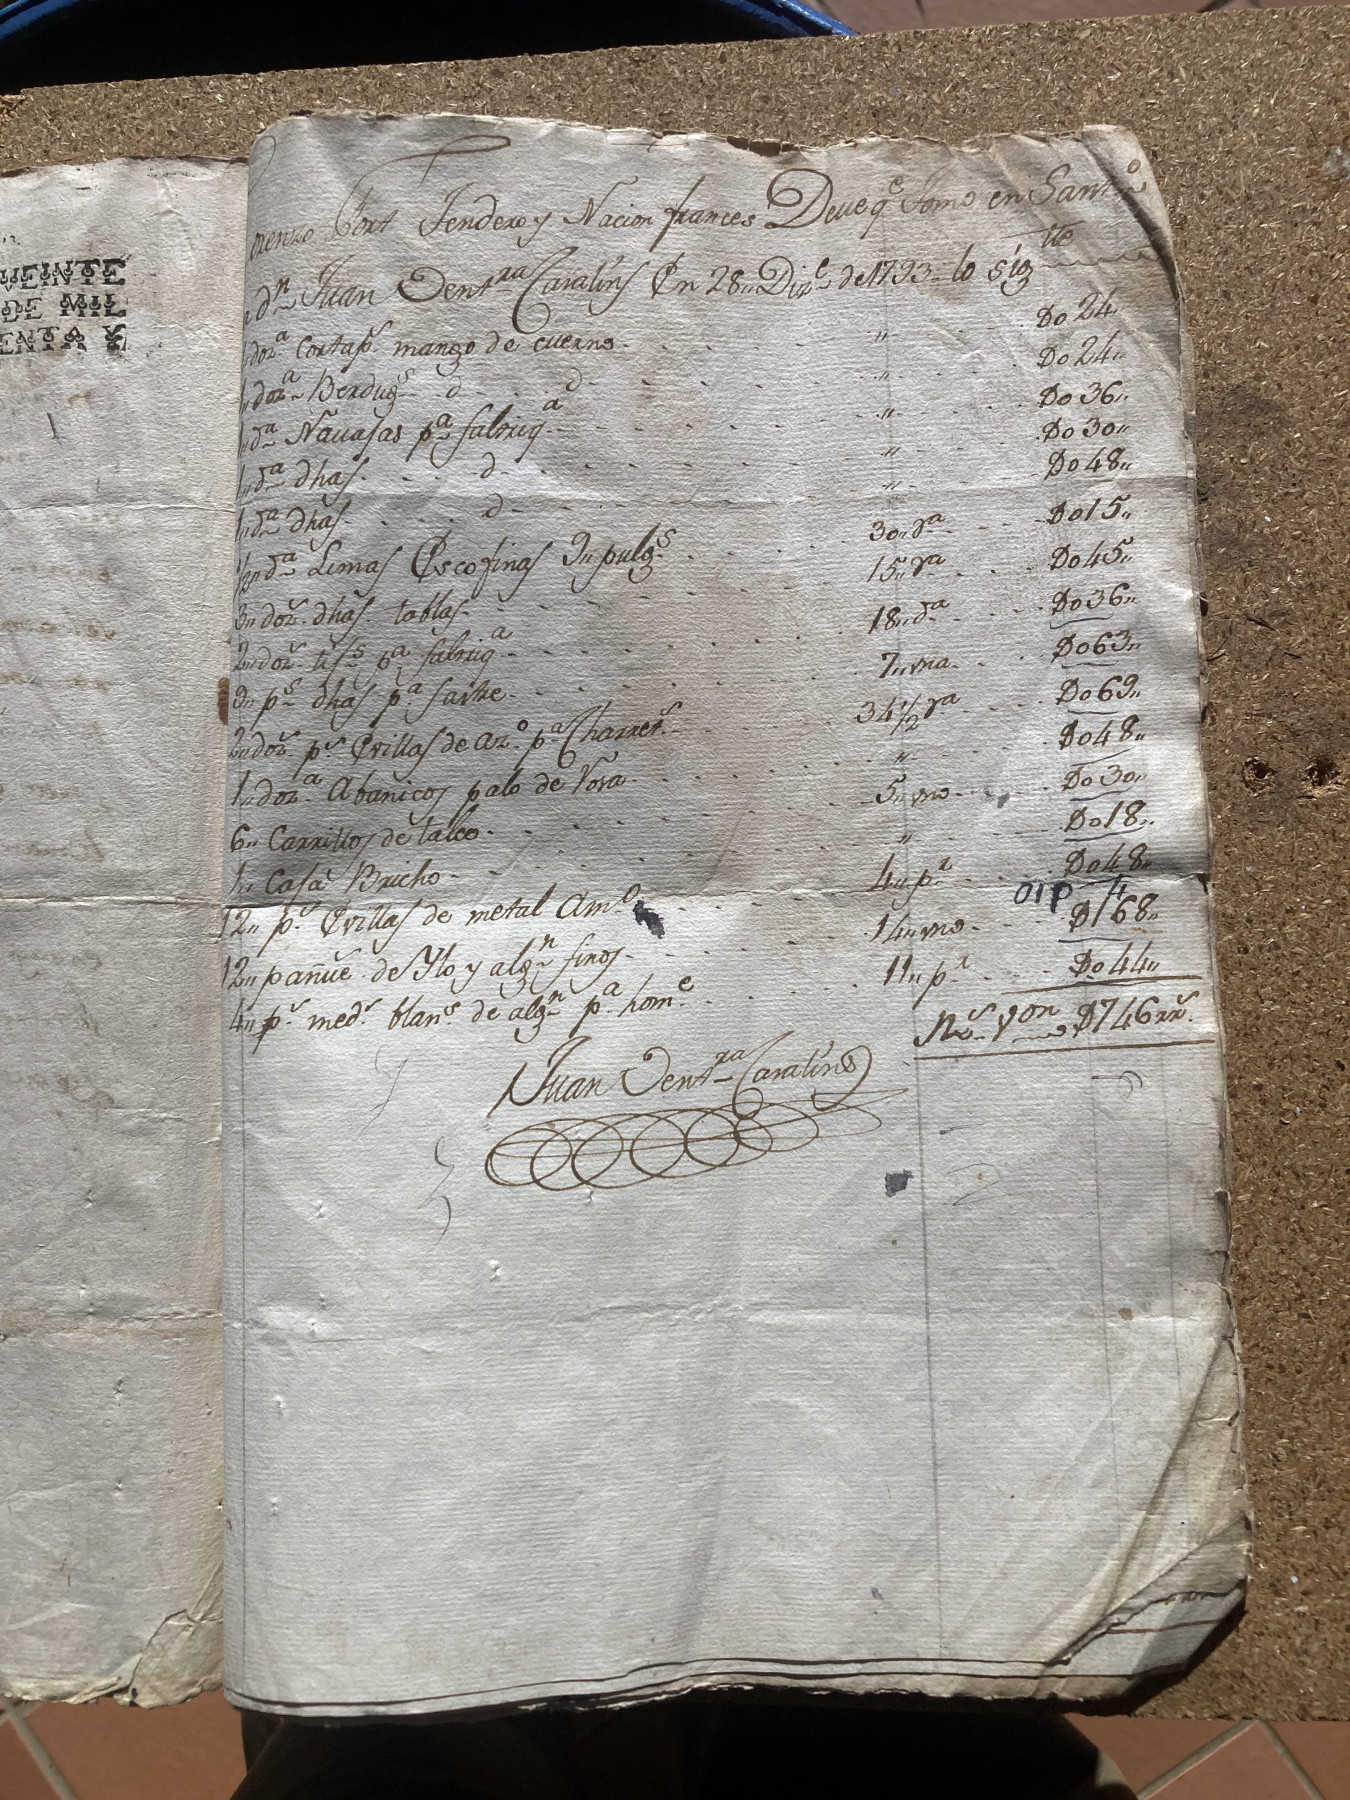 VEINTE
DE MIL
ENTA Y
orenzo Fort Tendero y Nacion frances Deve qe. tomo en Santo
a dn. Juan Bentra Caralins En 28,, Dize. de 1793 lo sigte
doza. Cortaps. mango de cuerno " Do24"
1,, doza. Berdugs. d d " Do24"
1,, da. Navajas pa. fabriqa. " Do36"
1,, da. dhas d " Do30"
1,, da. dhas d " Do48"
1/2,, da. Limas Escofinas 9,, pulgs. 30,, da Do15"
3,, dozs. dhas tablas 15,, da Do45"
2,, dozs. tijs. pa. fabriqa. 18,, da Do36"
9,, ps. dhas pa. sastre 7,, una Do63"
2,, dozs. ps. Evillas de azo. pa. Charrets. 34 1/2 da Do69"
1,, doza. Abanicos palo de Rosa " Do48"
6,, Carrillos de talco 5,, uno Do30"
1,, Casa Bricho " Do18"
12,, ps. Evillas de metal Amo. 4,, pr. Do48"
OIP 4
12,, pañue de Ylo y algn. finos 14,, uno D168"
4,, ps. meds. blans. de algn. pa. home. 11,, pr. Do44"
Rs. von D746rrs.
Juan Bentra Caralins